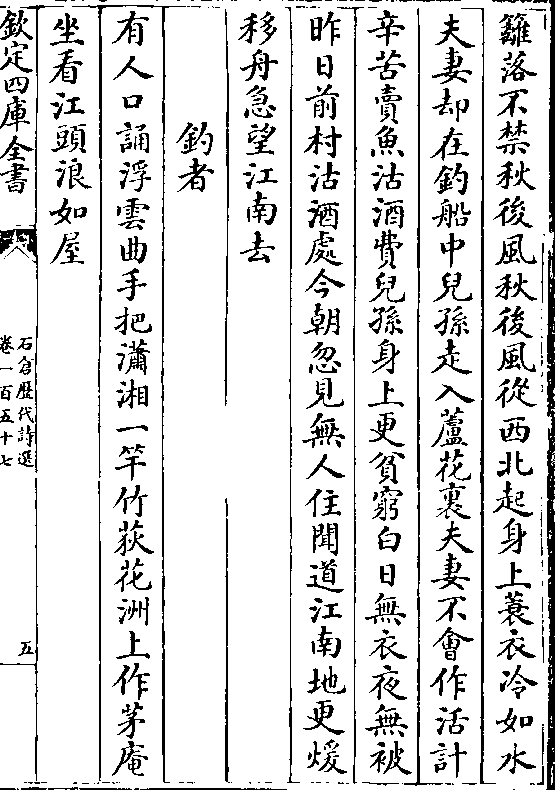 籬落不禁秋後風秋後風從西北起身上蓑衣冷如水
夫妻却在釣船中兒孫走入蘆花裏夫妻不會作活計
辛苦賣魚沽酒費兒孫身上更貧窮白日無衣夜無被
昨日前村沽酒處今朝忽見無人住聞道江南地更煖
移舟急望江南去
釣者
有人口誦浮雲曲手把瀟湘一竿竹荻花洲上作茅庵
坐看江頭浪如屋
欽定四庫全書
石倉歷代詩選
卷一百五十七
五